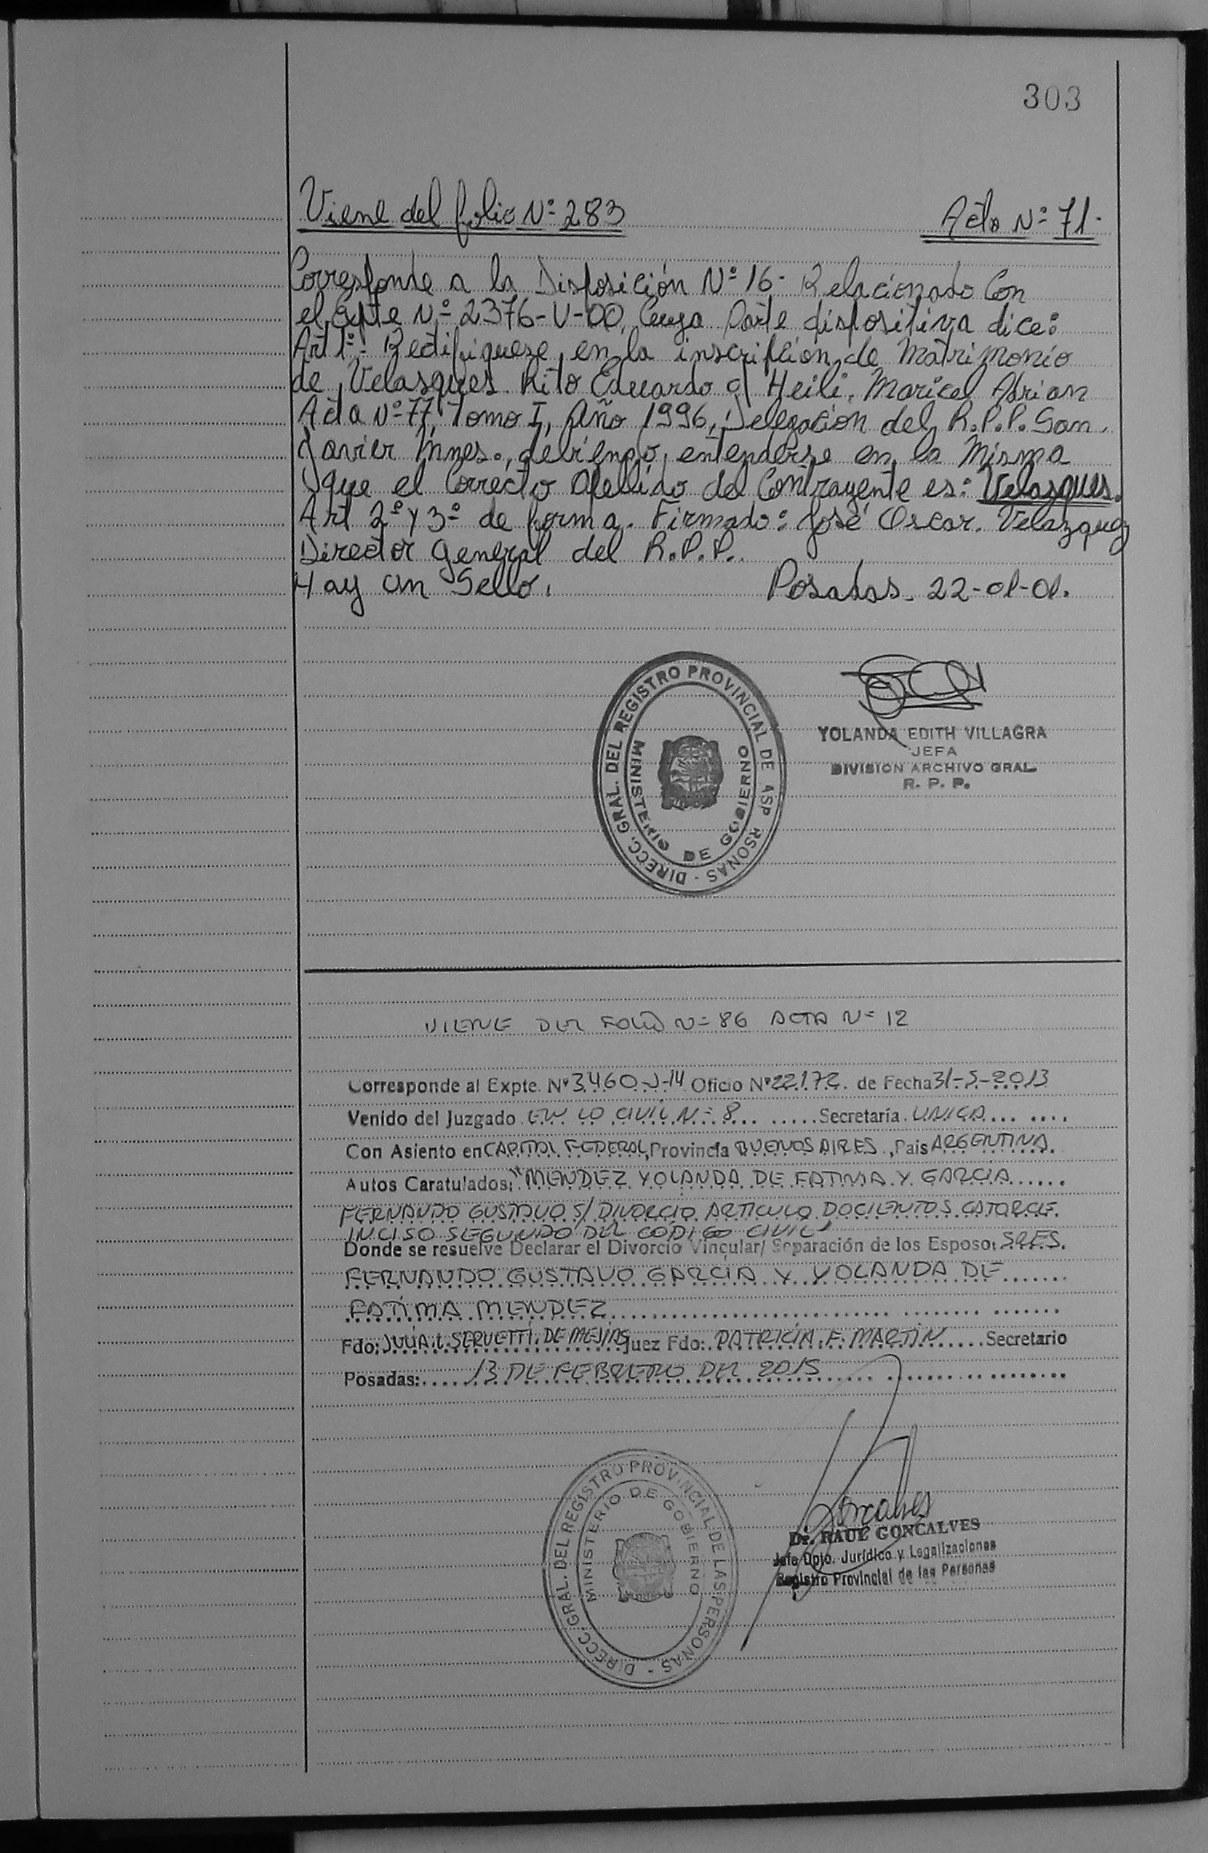 303
Viene del folio Nº 283 Acta Nº 71.
Corresponde a la Disposición Nº 16 - Relacionado Con
el expte Nº 2376-V-00, Cuya Parte dispositiva dice:
Art 1º: Rectifiquese en la inscripcion de Matrimonio
de Velasques Rito Eduardo c/ Heili, Maricel Adrian
Acta Nº 77, Tomo I, Año 1996, Delegacion del R.P.P. San
Javier Mnes., debiendo entenderse en la Misma
que el Correcto Apellido del Contrayente es: Velasques.
Art 2º y 3º de forma. Firmado: José Oscar Velazquez
Director General del R.P.P.
Hay un Sello. Posadas. 22-01-01.
DIRECC. GRAL. DEL REGISTRO PROVINCIAL DE ASP RSONAS -
MINISTERIO DE GOBIERNO
YOLANDA EDITH VILLAGRA
JEFA
DIVISION ARCHIVO GRAL.
R. P. P.
VIENE DEL FOLIO Nº 86 ACTA Nº 12
Corresponde al Expte. Nº 3460-J-14 Oficio Nº 22172. de Fecha 31-5-2013
Venido del Juzgado EN LO CIVIL Nº 8 Secretaría UNICA
Con Asiento en CAPITAL FEDERAL, Provincia BUENOS AIRES, Pais ARGENTINA
Autos Caratulados: "MENDEZ YOLANDA DE FATIMA Y GARCIA
FERNANDO GUSTAVO S/ DIVORCIO ARTICULO DOCIENTOS CATORCE
INCISO SEGUNDO DEL CODIGO CIVIL"
Donde se resuelve Declarar el Divorcio Vincular/ Separación de los Esposos SRES.
FERNANDO GUSTAVO GARCIA Y YOLANDA DE
FATIMA MENDEZ
Fdo: JULIA L. SERVETTI DE MEJIAS Juez Fdo: PATRICIA F. MARTIN Secretario
Posadas: 13 DE FEBRERO DEL 2015
DIRECC. GRAL. DEL REGISTRO PROVINCIAL DE LAS PERSONAS -
MINISTERIO DE GOBIERNO
Goncalves
Dr. RAUL GONCALVES
Jefe Dpto. Jurídico y Legalizaciones
Registro Provincial de las Personas